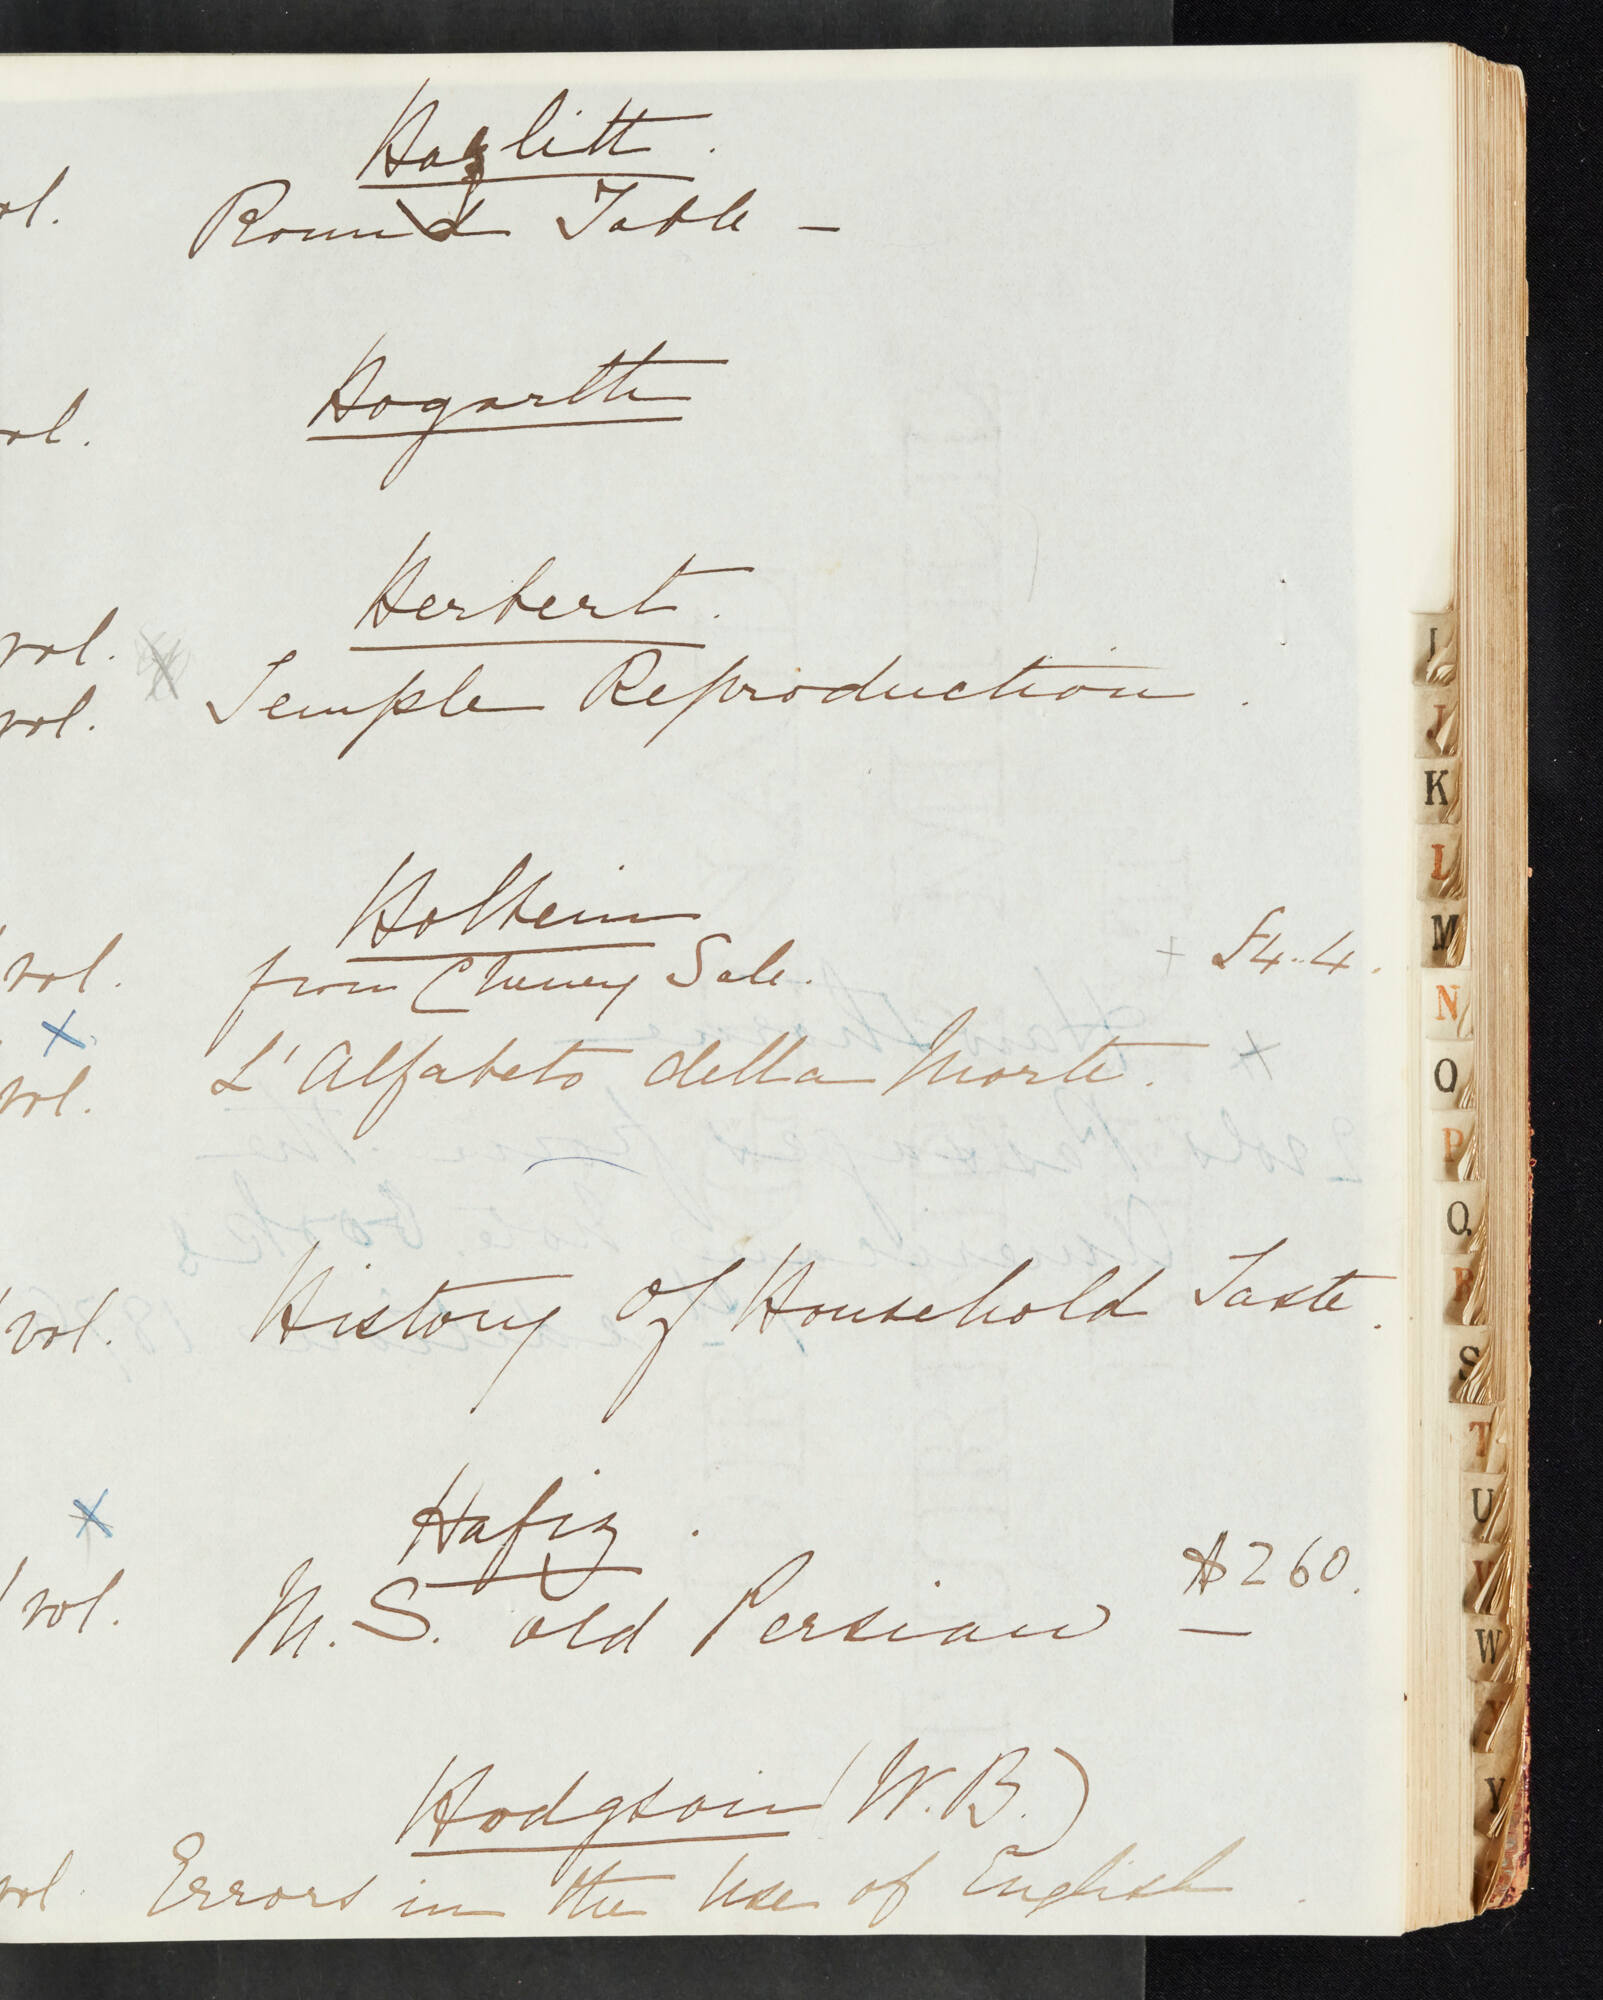 Hazlitt.
ol. Round Table —
ol. Hogarth
Herbert.
vol. Temple Reproduction.
vol.
Holbein
vol. from Cheney Sale. + £4..4.
x
vol. L'Alfabeto della Morte. x
1 vol. History of Household Taste.
x Hafiz.
1 vol. M.S. old Persian — $260.
Hodgson (W.B.)
vol Errors in the Use of English.
I
J
K
L
M
N
O
P
Q
R
S
T
U
V
W
Y